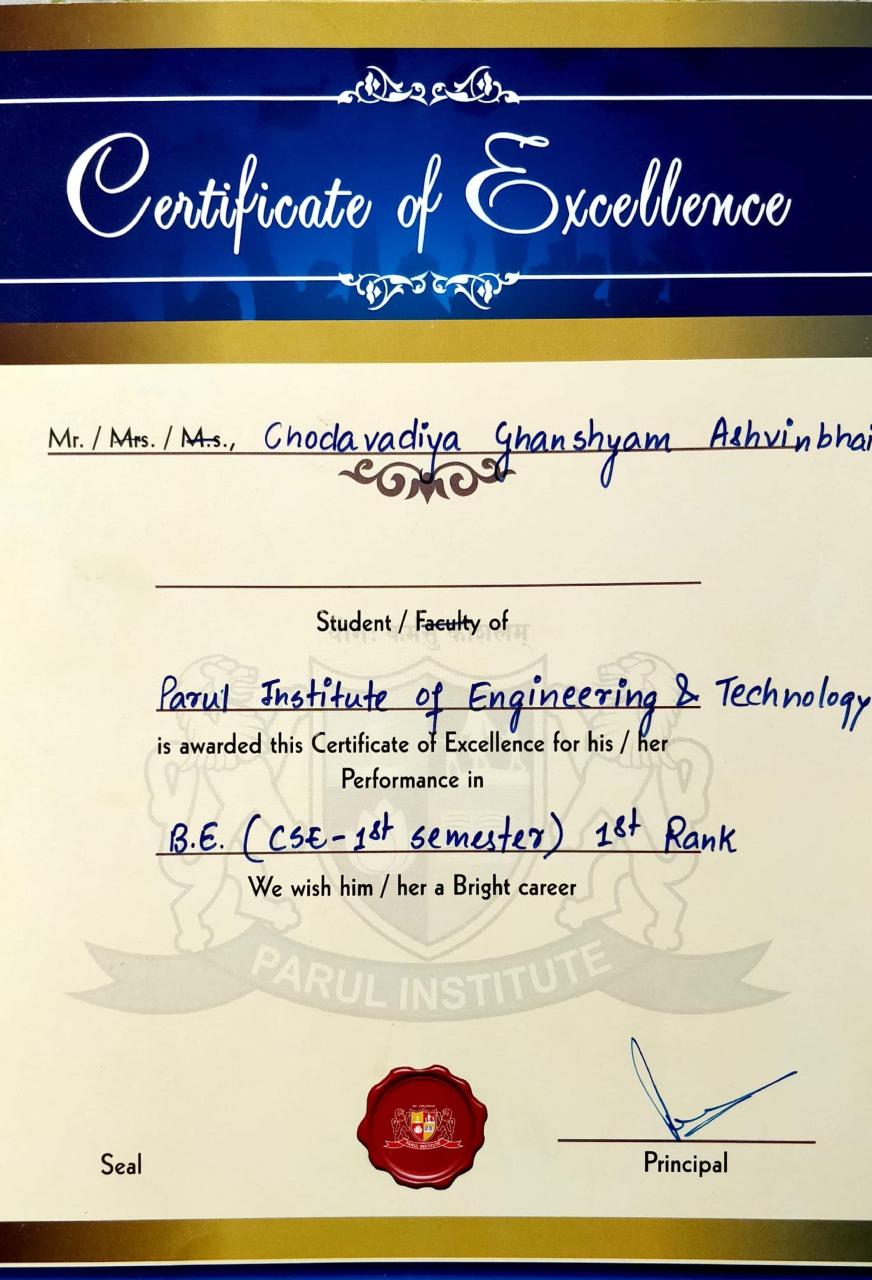 Certificate of Excellence
Mr. / Mrs. / M.s., Chodavadiya Ghanshyam Ashvinbhai
Student / Faculty of
Parul Institute of Engineering & Technology
is awarded this Certificate of Excellence for his / her
Performance in
B.E. (CSE-1st semester) 1st Rank
We wish him / her a Bright career
PARUL INSTITUTE
PARUL INSTITUTE
Seal
Principal